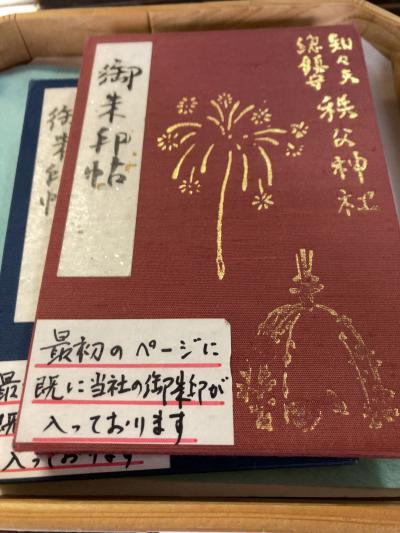 知々夫
総鎮守
秩父神社
御朱印帖
最初のページに
既に当社の御朱印が
入っております
御朱印帖
最
既
入っております